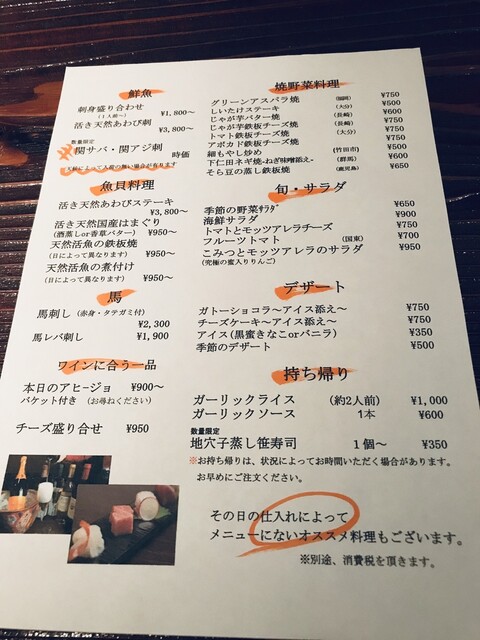 鮮魚
刺身盛り合わせ
(1人前〜) ¥1,800〜
活き天然あわび刺
¥3,800〜
数量限定
関サバ・関アジ刺 時価
魚貝料理
活き天然あわびステーキ
¥3,800〜
活き天然国産はまぐり
(酒蒸しor香草バター) ¥950〜
天然活魚の鉄板焼
(日によって異なります) ¥950〜
天然活魚の煮付け
(日によって異なります) ¥950〜
馬
馬刺し(赤身・タテガミ付)
¥2,300
馬レバ刺し ¥1,900
ワインに合う一品
本日のアヒージョ ¥900〜
バケット付き (お尋ねください)
チーズ盛り合せ ¥950
焼野菜料理
グリーンアスパラ焼 (福岡) ¥750
しいたけステーキ (大分) ¥500
じゃが芋バター焼 (長崎) ¥600
じゃが芋鉄板チーズ焼 (長崎) ¥750
トマト鉄板チーズ焼 (大分) ¥750
アボカド鉄板チーズ焼 ¥750
細もやし炒め (竹田市) ¥500
下仁田ネギ焼-ねぎ味噌添え- (群馬) ¥600
そら豆の蒸し鉄板焼 (鹿児島) ¥650
旬・サラダ
季節の野菜サラダ ¥650
海鮮サラダ ¥900
トマトとモッツアレラチーズ ¥750
フルーツトマト (国東) ¥700
こみつとモッツアレラのサラダ ¥950
(究極の蜜入りりんご)
デザート
ガトーショコラ〜アイス添え〜 ¥750
チーズケーキ〜アイス添え〜 ¥750
アイス(黒蜜きなこorバニラ) ¥350
季節のデザート ¥500
持ち帰り
ガーリックライス (約2人前) ¥1,000
ガーリックソース 1本 ¥600
数量限定
地穴子蒸し笹寿司 1個〜 ¥350
※お持ち帰りは、状況によってお時間いただく場合があります。
お早めにご注文ください。
その日の仕入れによって
メニューにないオススメ料理もございます。
※別途、消費税を頂きます。